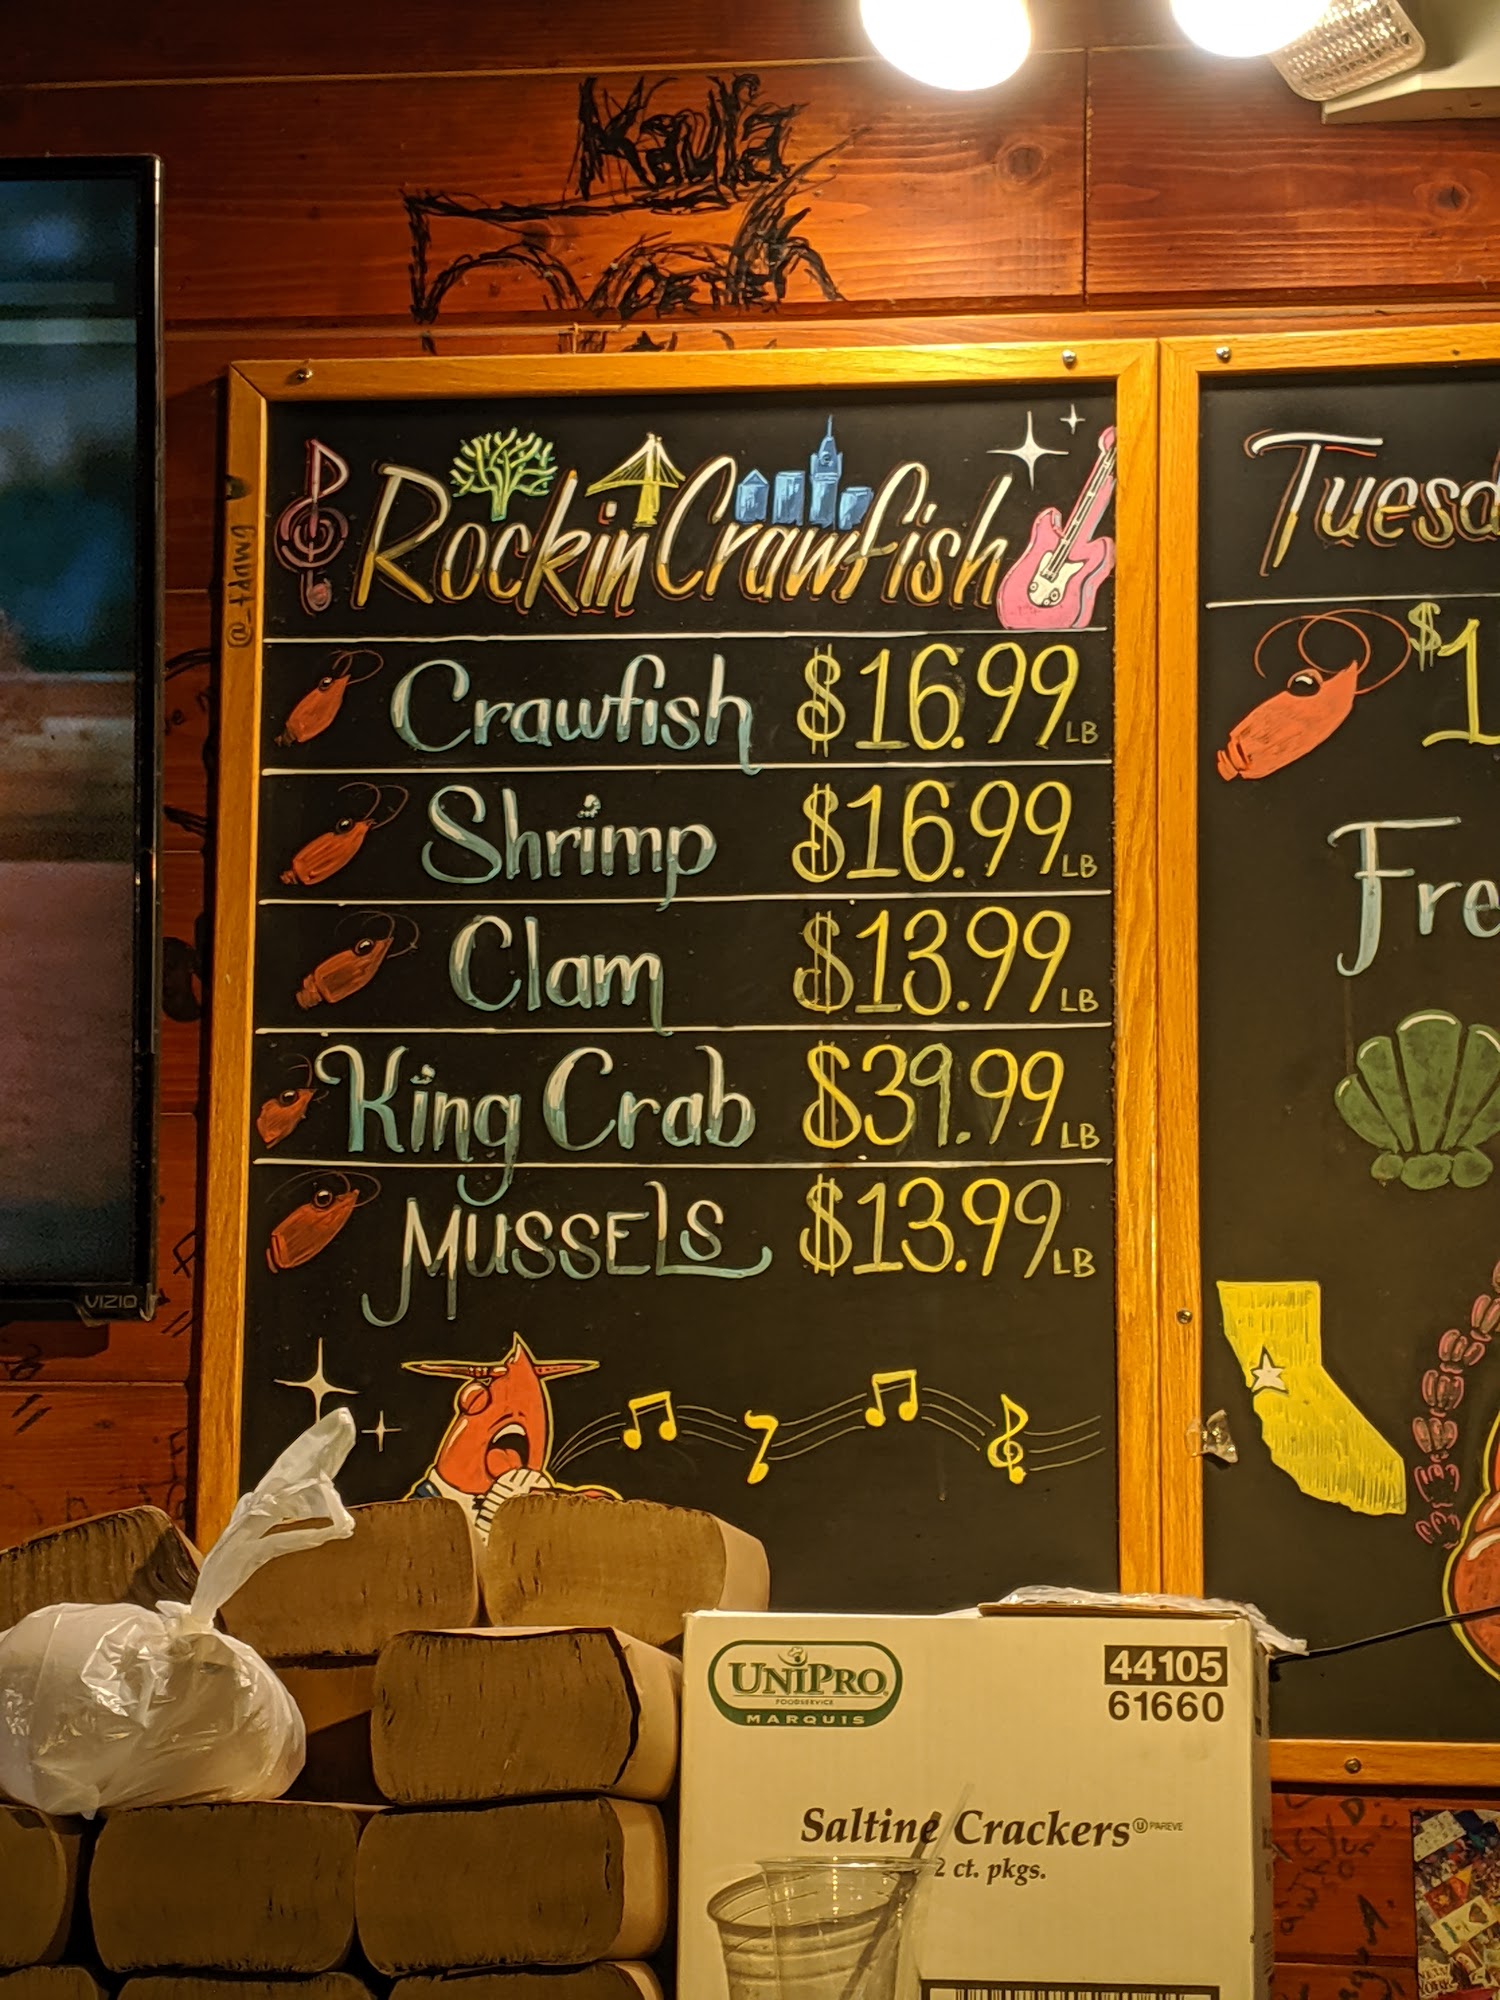 Kayla
Rockin Crawfish
Crawfish $16.99 LB
Shrimp $16.99 LB
Clam $13.99 LB
King Crab $39.99 LB
MUSSELS $13.99 LB
VIZIO
UNIPRO
FOODSERVICE
MARQUIS
44105
61660
Saltine Crackers U PAREVE
2 ct. pkgs.